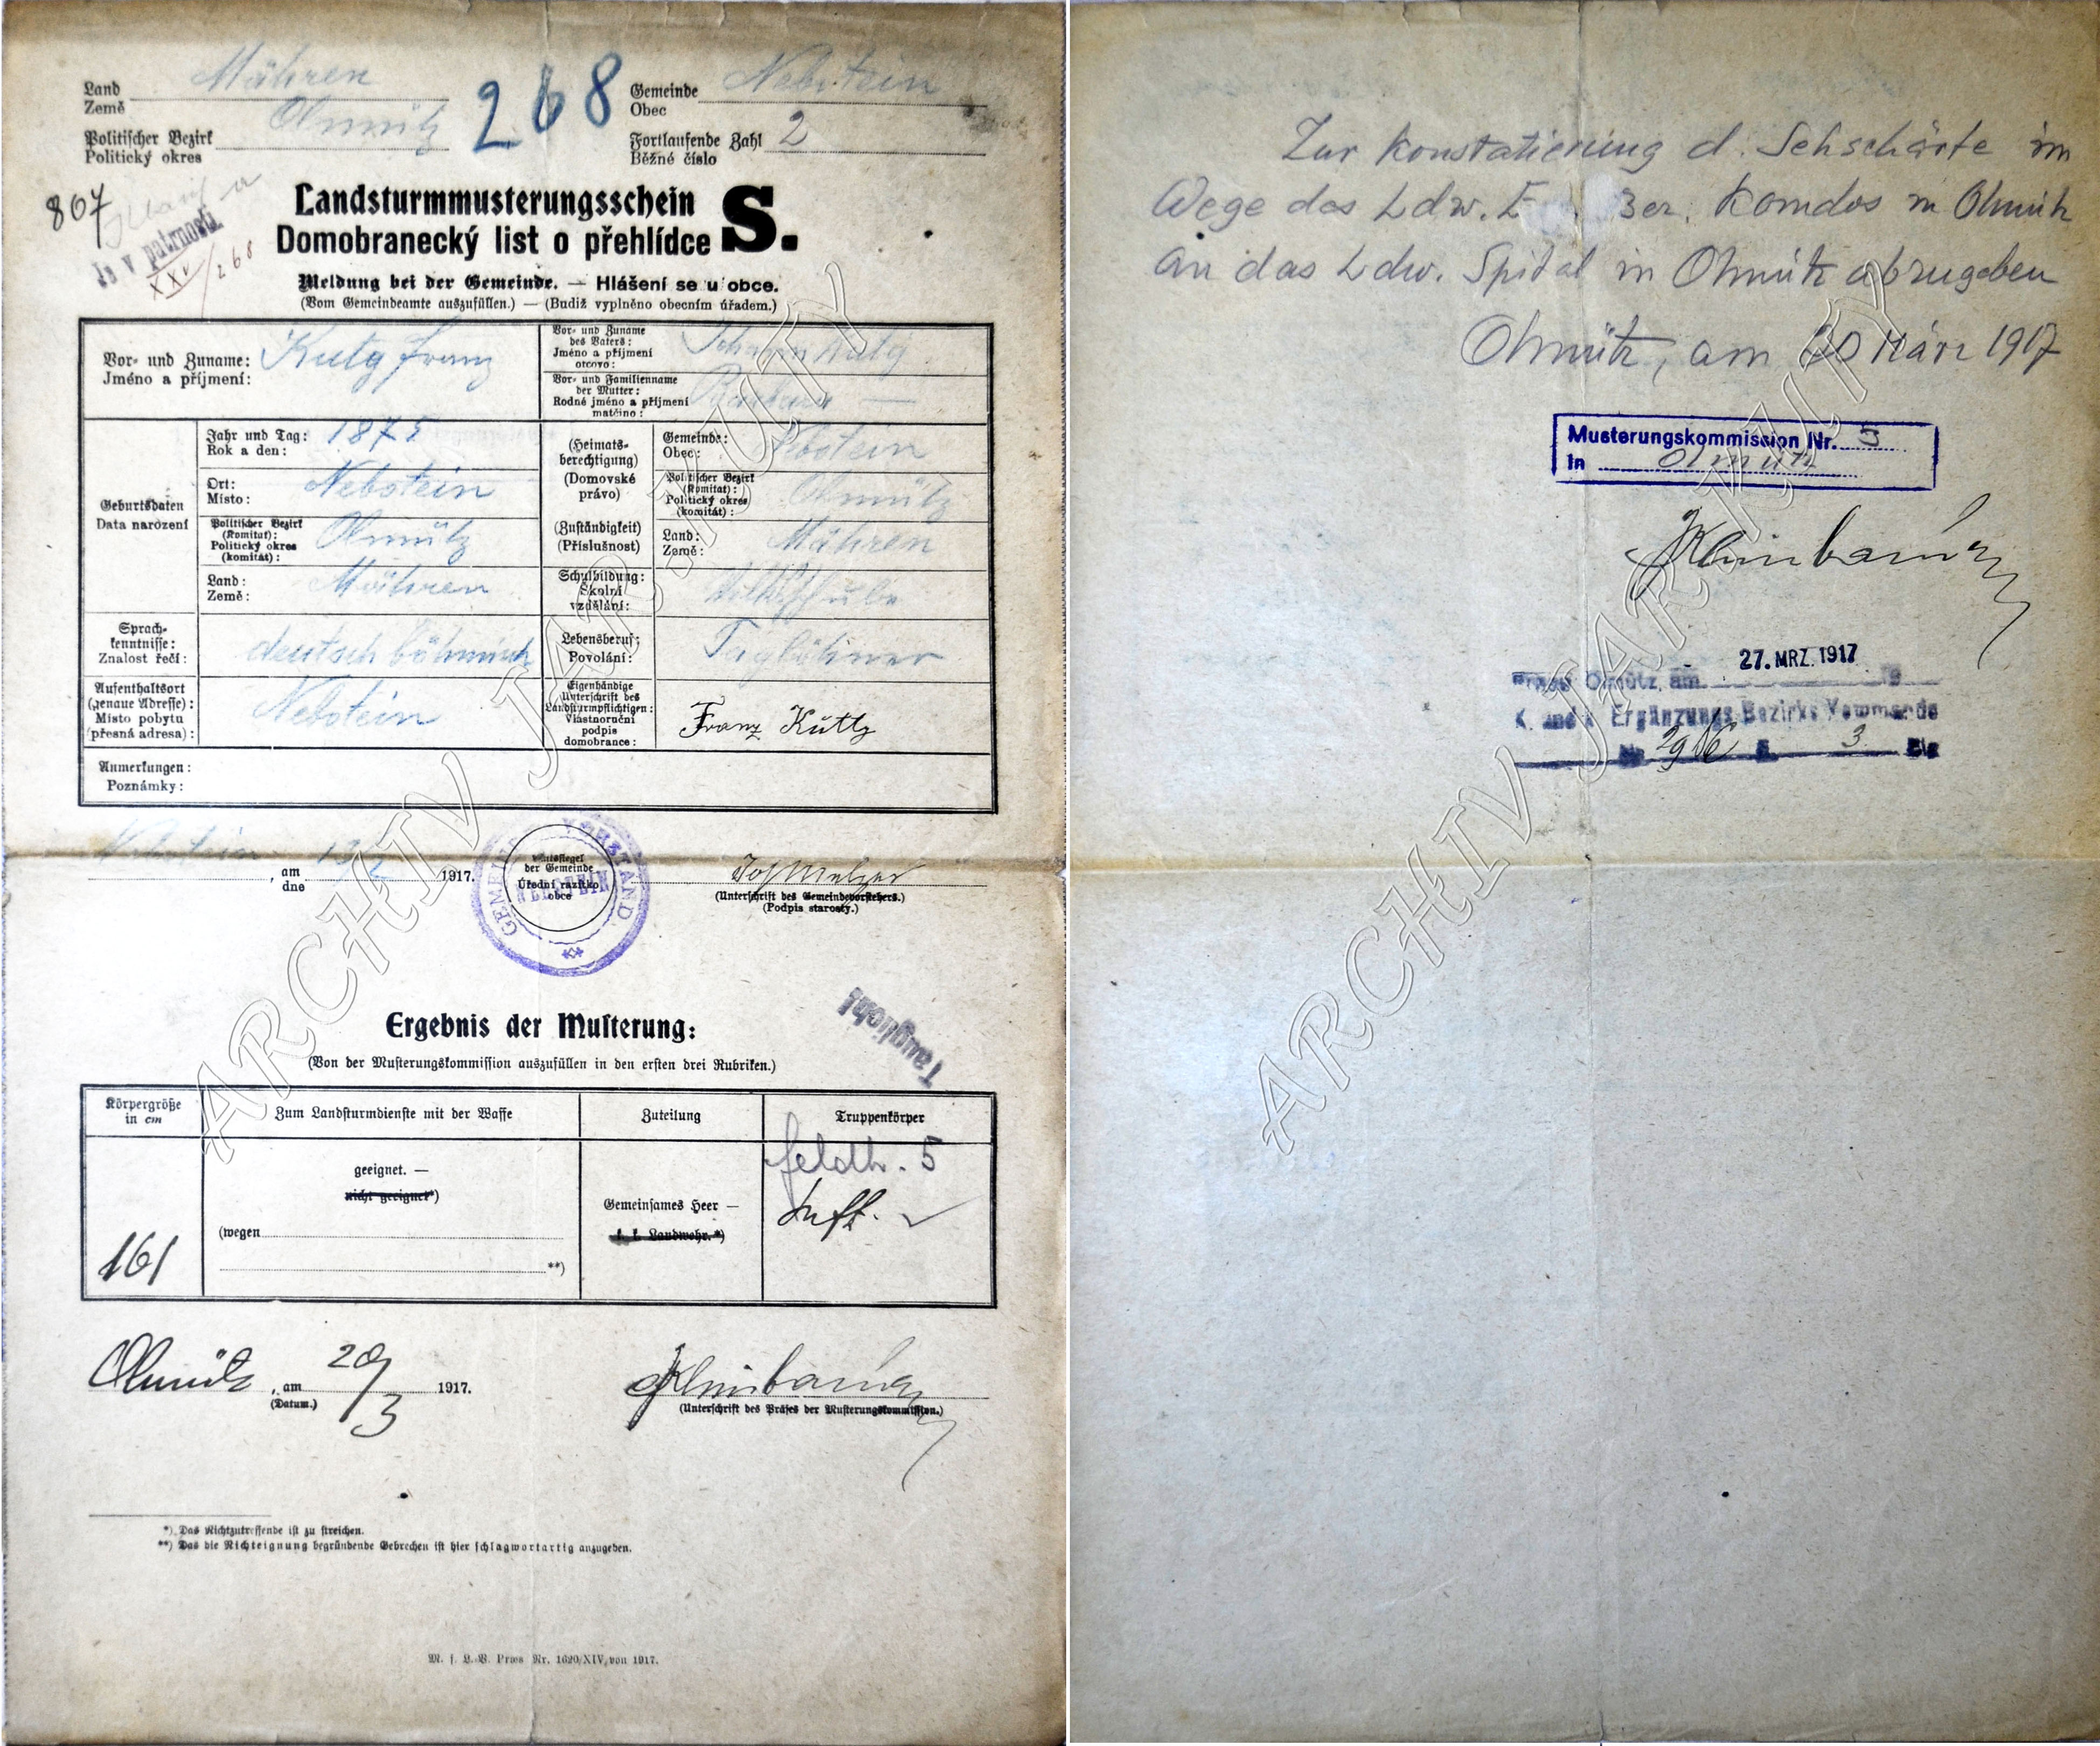 Land Mähren
Země
Politischer Bezirk Olmütz
Politický okres
268
Gemeinde Nebotein
Obec
Fortlaufende Zahl 2
Běžné číslo
807
Je v patrnosti
XXI/268
Landsturmmusterungsschein
Domobranecký list o přehlídce
S.
Meldung bei der Gemeinde. — Hlášení se u obce.
(Vom Gemeindeamte auszufüllen.) — (Budiž vyplněno obecním úřadem.)
Vor- und Zuname:
Jméno a příjmení:
Kuty Franz
Vor- und Zuname
des Vaters:
Jméno a příjmení
otcovo:
Johann Kuty
Vor- und Familienname
der Mutter:
Rodné jméno a příjmení
matčino:
Barbara —
Geburtsdaten
Data narození
Jahr und Tag:
Rok a den:
1875
Ort:
Místo:
Nebotein
Politischer Bezirk
(Komitat):
Politický okres
(komitát):
Olmütz
Land:
Země:
Mähren
(Heimats-
berechtigung)
(Domovské
právo)
(Zuständigkeit)
(Příslušnost)
Gemeinde:
Obec:
Nebotein
Politischer Bezirk
(Komitat):
Politický okres
(komitát):
Olmütz
Land:
Země:
Mähren
Schulbildung:
Školní
vzdělání:
Volksschule
Sprach-
kenntnisse:
Znalost řečí:
deutsch böhmisch
Lebensberuf:
Povolání:
Taglöhner
Aufenthaltsort
(genaue Adresse):
Místo pobytu
(přesná adresa):
Nebotein
Eigenhändige
Unterschrift des
Landsturmpflichtigen:
Vlastnoruční
podpis
domobrance:
Franz Kutty
Anmerkungen:
Poznámky:
Nebotein, am
dne
1917.
GEMEINDE VORSTAND
NEBOTEIN
Amtssiegel
der Gemeinde
Úřední razítko
obce
Jos Melzer
(Unterschrift des Gemeindevorstehers.)
(Podpis starosty.)
Tauglich!
Ergebnis der Musterung:
(Von der Musterungskommission auszufüllen in den ersten drei Rubriken.)
Körpergröße
in cm
Zum Landsturmdienste mit der Waffe
Zuteilung
Truppenkörper
161
geeignet. —
nicht geeignet*)
(wegen
**)
Gemeinsames Heer —
k. k. Landwehr.*)
5
Olmütz, am 20/3 1917.
(Datum.)
(Unterschrift des Präses der Musterungskommission.)
*) Das Nichtzutreffende ist zu streichen.
**) Das die Nichteignung begründende Gebrechen ist hier schlagwortartig anzugeben.
M. f. L.-V. Praes Nr. 1620/XIV, von 1917.
ARCHIV JAR. KUTY
Zur Konstatierung d. Sehschärfe im
Wege des Ldw. Ber. Komdos in Olmütz
an das Ldw. Spital in Olmütz abzugeben
Olmütz, am 20 März 1917
Musterungskommission Nr. 3
in Olmütz
27. MRZ. 1917
Olmütz, am
K. und k. Ergänzungs Bezirks Kommando
3
ARCHIV JAR. KUTY